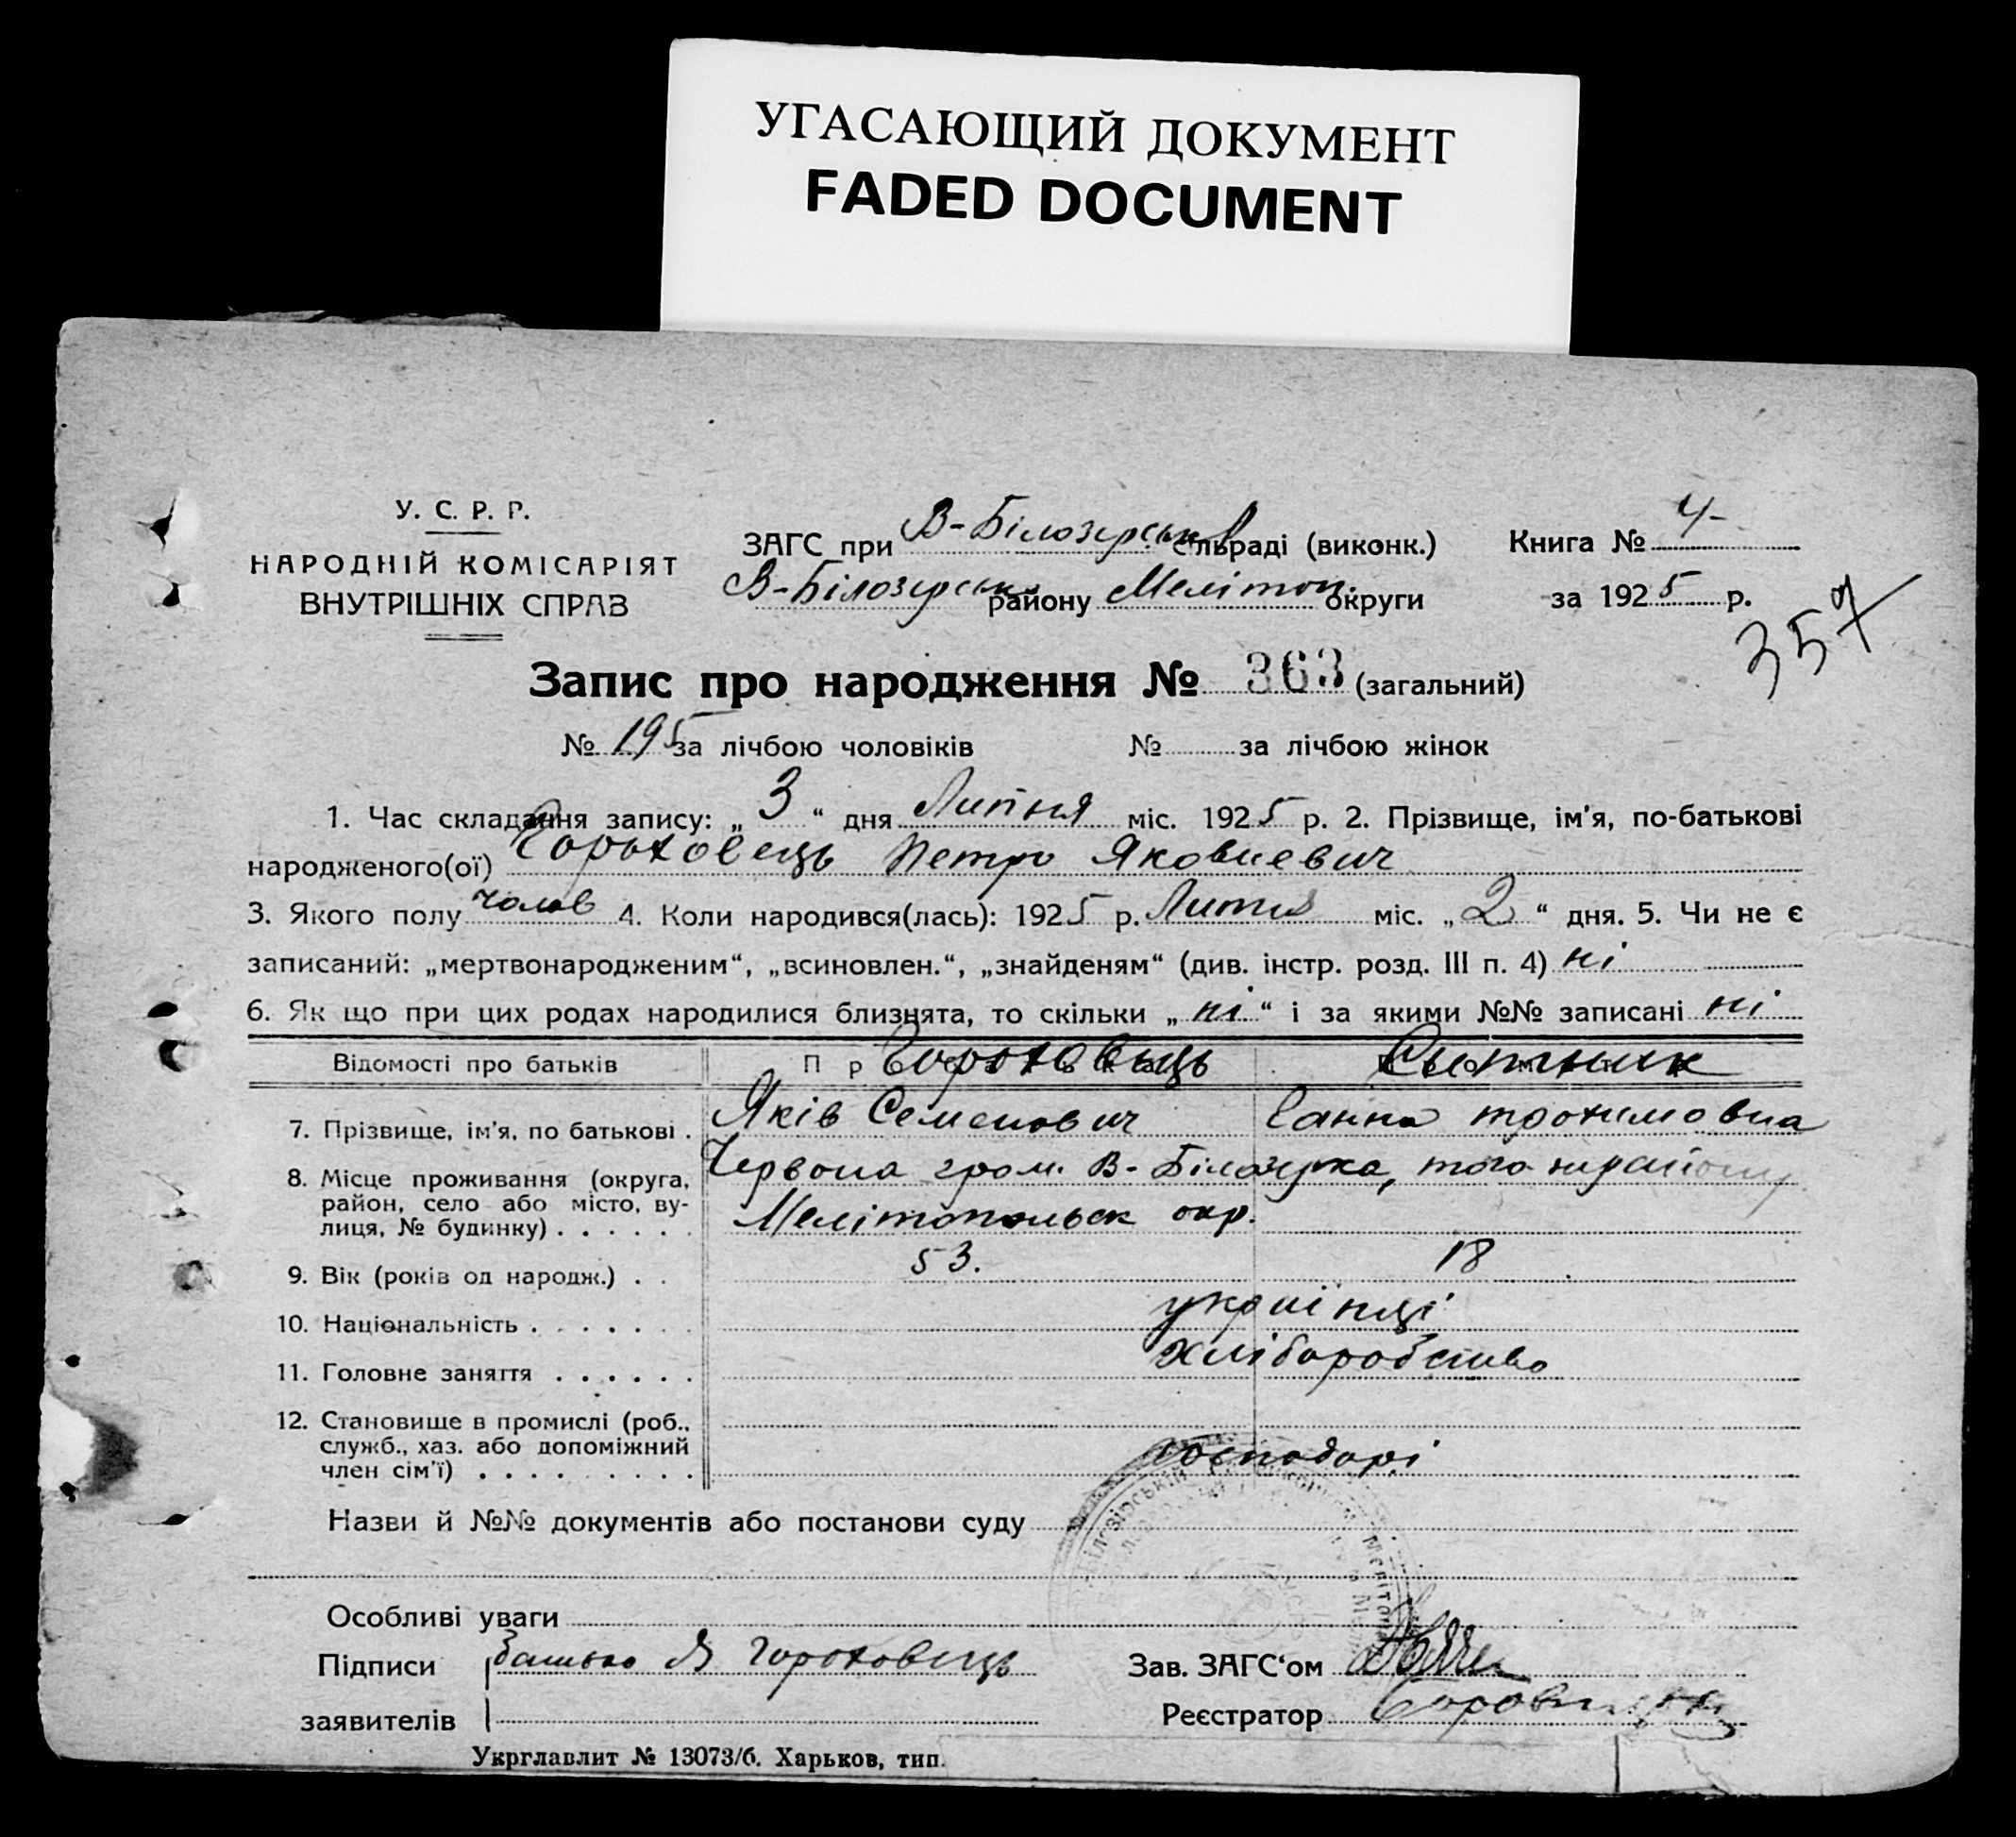 УГАСАЮЩИЙ ДОКУМЕНТ
FADED DOCUMENT
У. С. Р. Р.
НАРОДНІЙ КОМІСАРІЯТ
ВНУТРІШНІХ СПРАВ
ЗАГС при В-Білозерськ сільраді (виконк.)
В-Білозерськ району Мелітоп. округи
Книга № 4
за 1925 р.
357
Запис про народження № 363 (загальний)
№ 195 за лічбою чоловіків № за лічбою жінок
1. Час складання запису: „ 3 “ дня Липня міс. 1925 р. 2. Прізвище, ім'я, по-батькові
народженого(ої) Гороховець Петро Яковлевич
3. Якого полу чолов 4. Коли народився(лась): 1925 р. Липня міс. „ 2 “ дня. 5. Чи не є
записаний: „мертвонародженим“, „всиновлен.“, „знайденям“ (див. інстр. розд. III п. 4) ні
6. Як що при цих родах народилися близнята, то скільки „ ні “ і за якими №№ записані ні
Відомості про батьків Гороховець Ситник
7. Прізвище, ім'я, по батькові . Яків Семенович Ганна трохимовна
8. Місце проживання (округа, Червона гром. В-Білозерка, того
район, село або місто, ву-
лиця, № будинку) . . . . . . Мелітопольск окр.
9. Вік (років од народж.) . . 53. 18
10. Національність . . . . . . . українці
11. Головне заняття . . . . . . хліборобство
12. Становище в промислі (роб.,
служб., хаз. або допоміжний
член сім'ї) . . . . . . . . . господарі
Назви й №№ документів або постанови суду
Особливі уваги
Підписи батько Я Гороховець Зав. ЗАГС‘ом
заявителів Реєстратор
Укрглавлит № 13073/б. Харьков, тип.